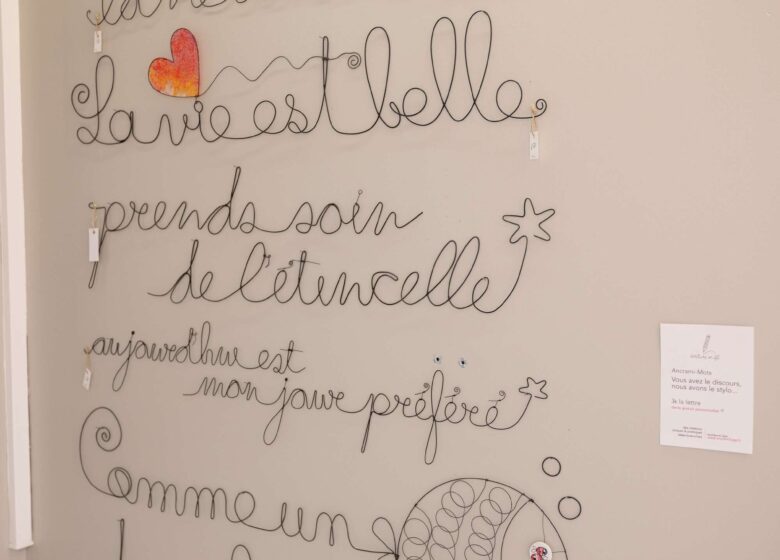 La vie est belle
prends soin
de l'étincelle
aujourd'hui est
mon jour préféré
Comme un
Ancrami-Mots
Vous avez le discours,
nous avons le stylo...
3€ la lettre